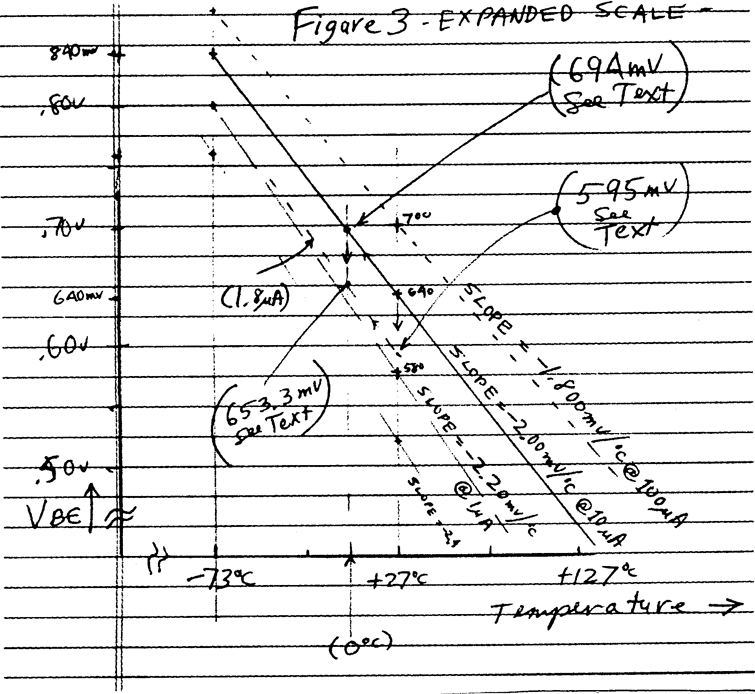 Figure 3 - EXPANDED SCALE -
840mv
.80v
(694mV
See Text)
(595mV
see
Text)
.70v
700
(1.8µA)
640mv
640
.60v
580
(653.3mV
see Text)
SLOPE = -1.800mv/°C @ 100µA
SLOPE = -2.00mv/°C @ 10µA
SLOPE = -2.20mv/°C
@ 1µA
SLOPE = -2.4
.50v
VBE ↑
-73°C
+27°C
+127°C
Temperature →
(0°C)